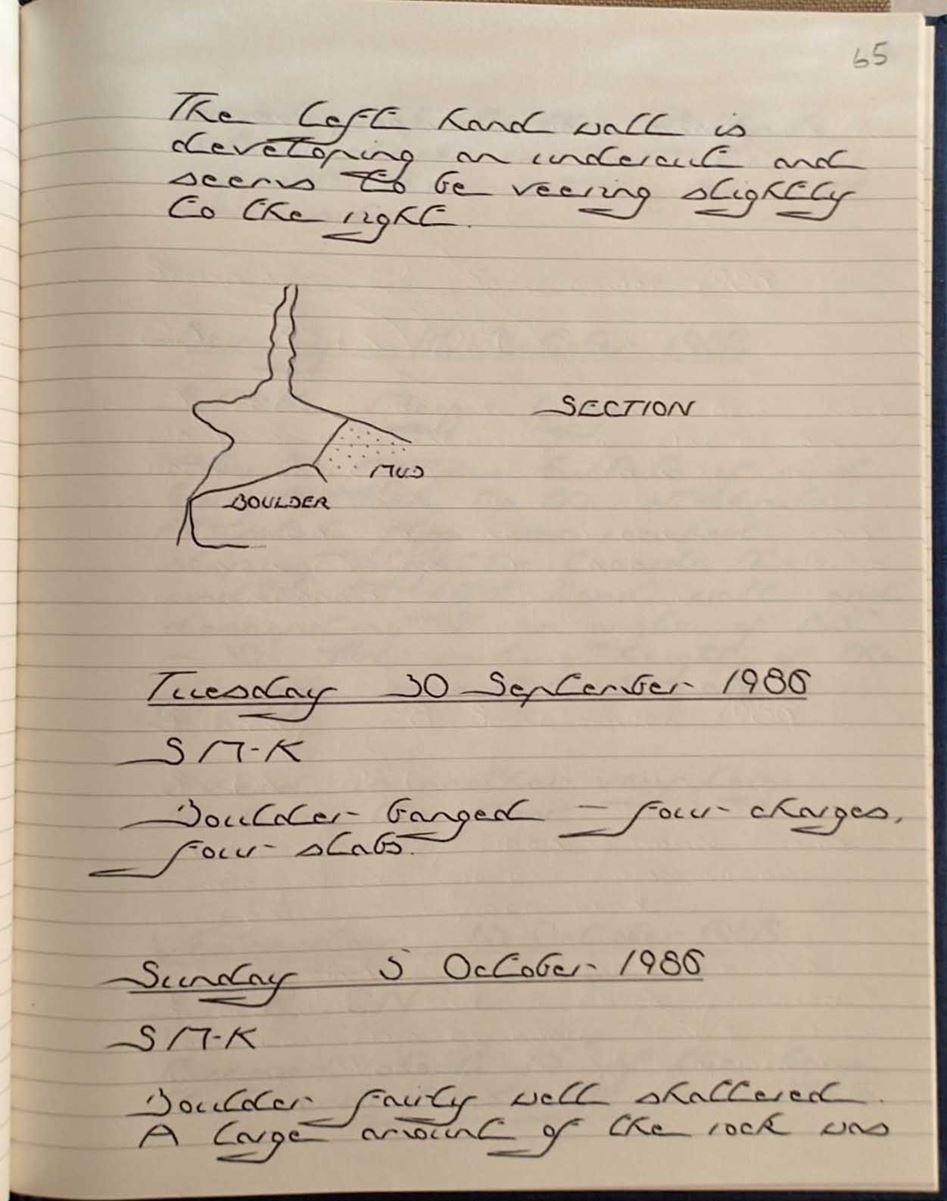 65
The left hand wall is
developing an undercut and
seems to be veering slightly
to the right.
SECTION
MUD
BOULDER
Tuesday 30 September 1986
S M-K
Boulder banged — four charges,
four slabs.
Sunday 5 October 1986
S M-K
Boulder fairly well shattered.
A large amount of the rock was